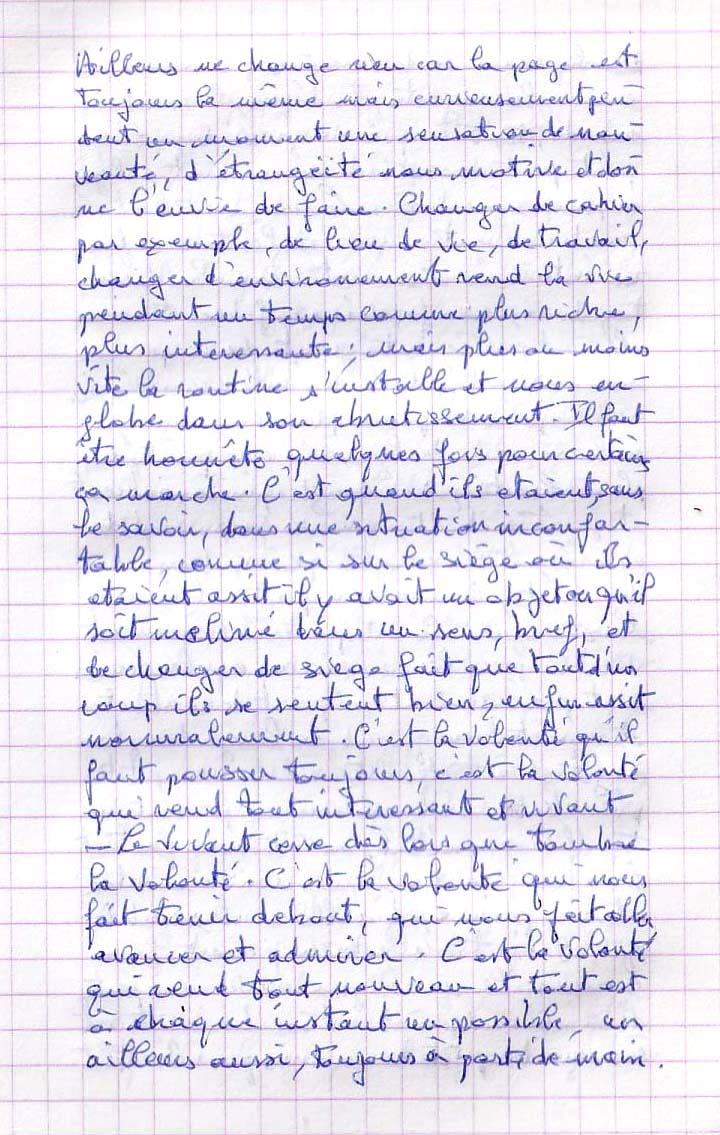 Ailleurs ne change rien car la page est
toujours la même mais curieusement pen-
dant un moment une sensation de nou-
veauté, d'étrangeité nous motive et don
ne l'envie de faire. Changer de cahier
par exemple, de lieu de vie, de travail,
changer d'environement rend la vie
pendant un temps comme plus riche,
plus interessante ; mais plus ou moins
vite la routine s'installe et nous en-
globe dans son abrutissement. Il faut
être honnête quelques fois pour certains
ça marche. C'est quand ils etaient, sans
le savoir, dans une situation inconfor-
table, comme si sur le siège où ils
etaient assit il y avait un objet ou qu'il
soit incliné dans un sens, bref, et
le changer de siège fait que tout d'un
coup ils se sentent bien, enfin assit
normalement. C'est la volonté qu'il
faut pousser toujours, c'est la volonté
qui rend tout interessant et vivant
- Le vivant cesse dès lors que tombe
la volonté. C'est la volonté qui nous
fait tenir debout, qui nous fait aller
avancer et admirer. C'est la volonté
qui rend tout nouveau et tout est
à chaque instant un possible, un
ailleurs aussi, toujours à porté de main.